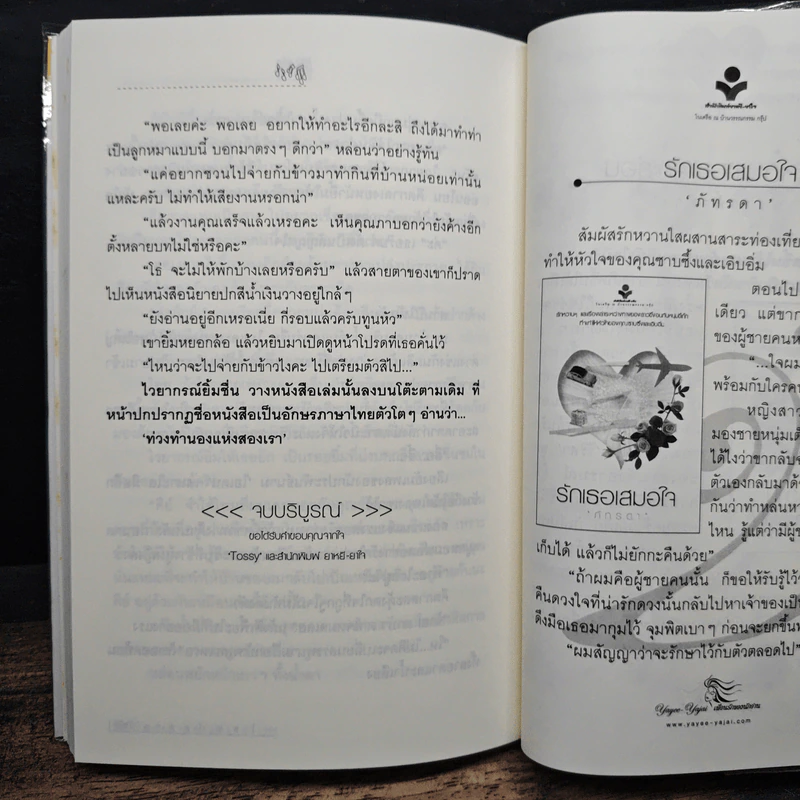 "พอเลยค่ะ พอเลย อยากให้ทำอะไรอีกละสิ ถึงได้มาทำท่า
เป็นลูกหมาแบบนี้ บอกมาตรงๆ ดีกว่า" หล่อนว่าอย่างรู้ทัน
"แค่อยากชวนไปจ่ายกับข้าวมาทำกินที่บ้านหน่อยเท่านั้น
แหละครับ ไม่ทำให้เสียงานหรอกน่า"
"แล้วงานคุณเสร็จแล้วเหรอคะ เห็นคุณภาบอกว่ายังค้างอีก
ตั้งหลายบทไม่ใช่หรือคะ"
"โธ่ จะไม่ให้พักบ้างเลยหรือครับ" แล้วสายตาของเขาก็ปราด
ไปเห็นหนังสือนิยายปกสีน้ำเงินวางอยู่ใกล้ๆ
"ยังอ่านอยู่อีกเหรอเนี่ย กี่รอบแล้วครับทูนหัว"
เขายิ้มหยอกล้อ แล้วหยิบมาเปิดดูหน้าโปรดที่เธอคั่นไว้
"ไหนว่าจะไปจ่ายกับข้าวไงคะ ไปเตรียมตัวสิไป..."
ไวยากรณ์ยิ้มชื่น วางหนังสือเล่มนั้นลงบนโต๊ะตามเดิม ที่
หน้าปกปรากฏชื่อหนังสือเป็นอักษรภาษาไทยตัวโตๆ อ่านว่า...
'ท่วงทำนองแห่งสองเรา'
<<< จบบริบูรณ์ >>>
ขอได้รับคำขอบคุณจากใจ
'Tossy' และสำนักพิมพ์ ยาหยี-ยาใจ
ในเครือ ณ บ้านวรรณกรรม กรุ๊ป
รักเธอเสมอใจ
'ภัทรดา'
สัมผัสรักหวานใสผสานสาระท่องเที่ย
ทำให้หัวใจของคุณซาบซึ้งและเอิบอิ่ม
ตอนไป
เดียว แต่ขาก
ของผู้ชายคนห
"...ใจผม
พร้อมกับใครคน
หญิงสาว
มองชายหนุ่มเต็
ได้ไงว่าขากลับจ
ตัวเองกลับมาด้
กันว่าทำหล่นหา
ไหน รู้แต่ว่ามีผู้ช
เก็บได้ แล้วก็ไม่ยักกะคืนด้วย"
"ถ้าผมคือผู้ชายคนนั้น ก็ขอให้รับรู้ไว้ว่
คืนดวงใจที่น่ารักดวงนั้นกลับไปหาเจ้าของเป็น
ดึงมือเธอมากุมไว้ จุมพิตเบาๆ ก่อนจะยกขึ้นท
"ผมสัญญาว่าจะรักษาไว้กับตัวตลอดไป"
รักเธอเสมอใจ
'ภัทรดา'
Yayee-Yajai เพื่อนรักของนักอ่าน
www.yayee-yajai.com